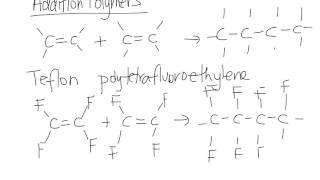 Addition Polymers
C=C + C=C → -C-C-C-C-
Teflon polytetrafluoroethylene
F F F F F F F F
C=C + C=C → -C-C-C-C-
F F F F F F F